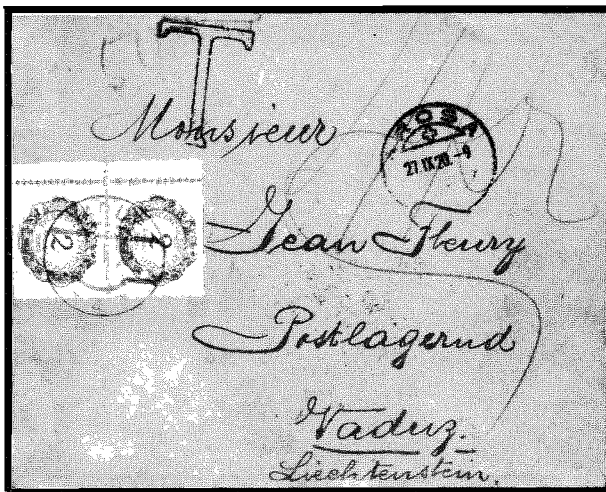 T
Monsieur
AROSA
27.IX.20.-9
2 2
Jean Fleury
Postlagernd
Vaduz.
Liechtenstein.